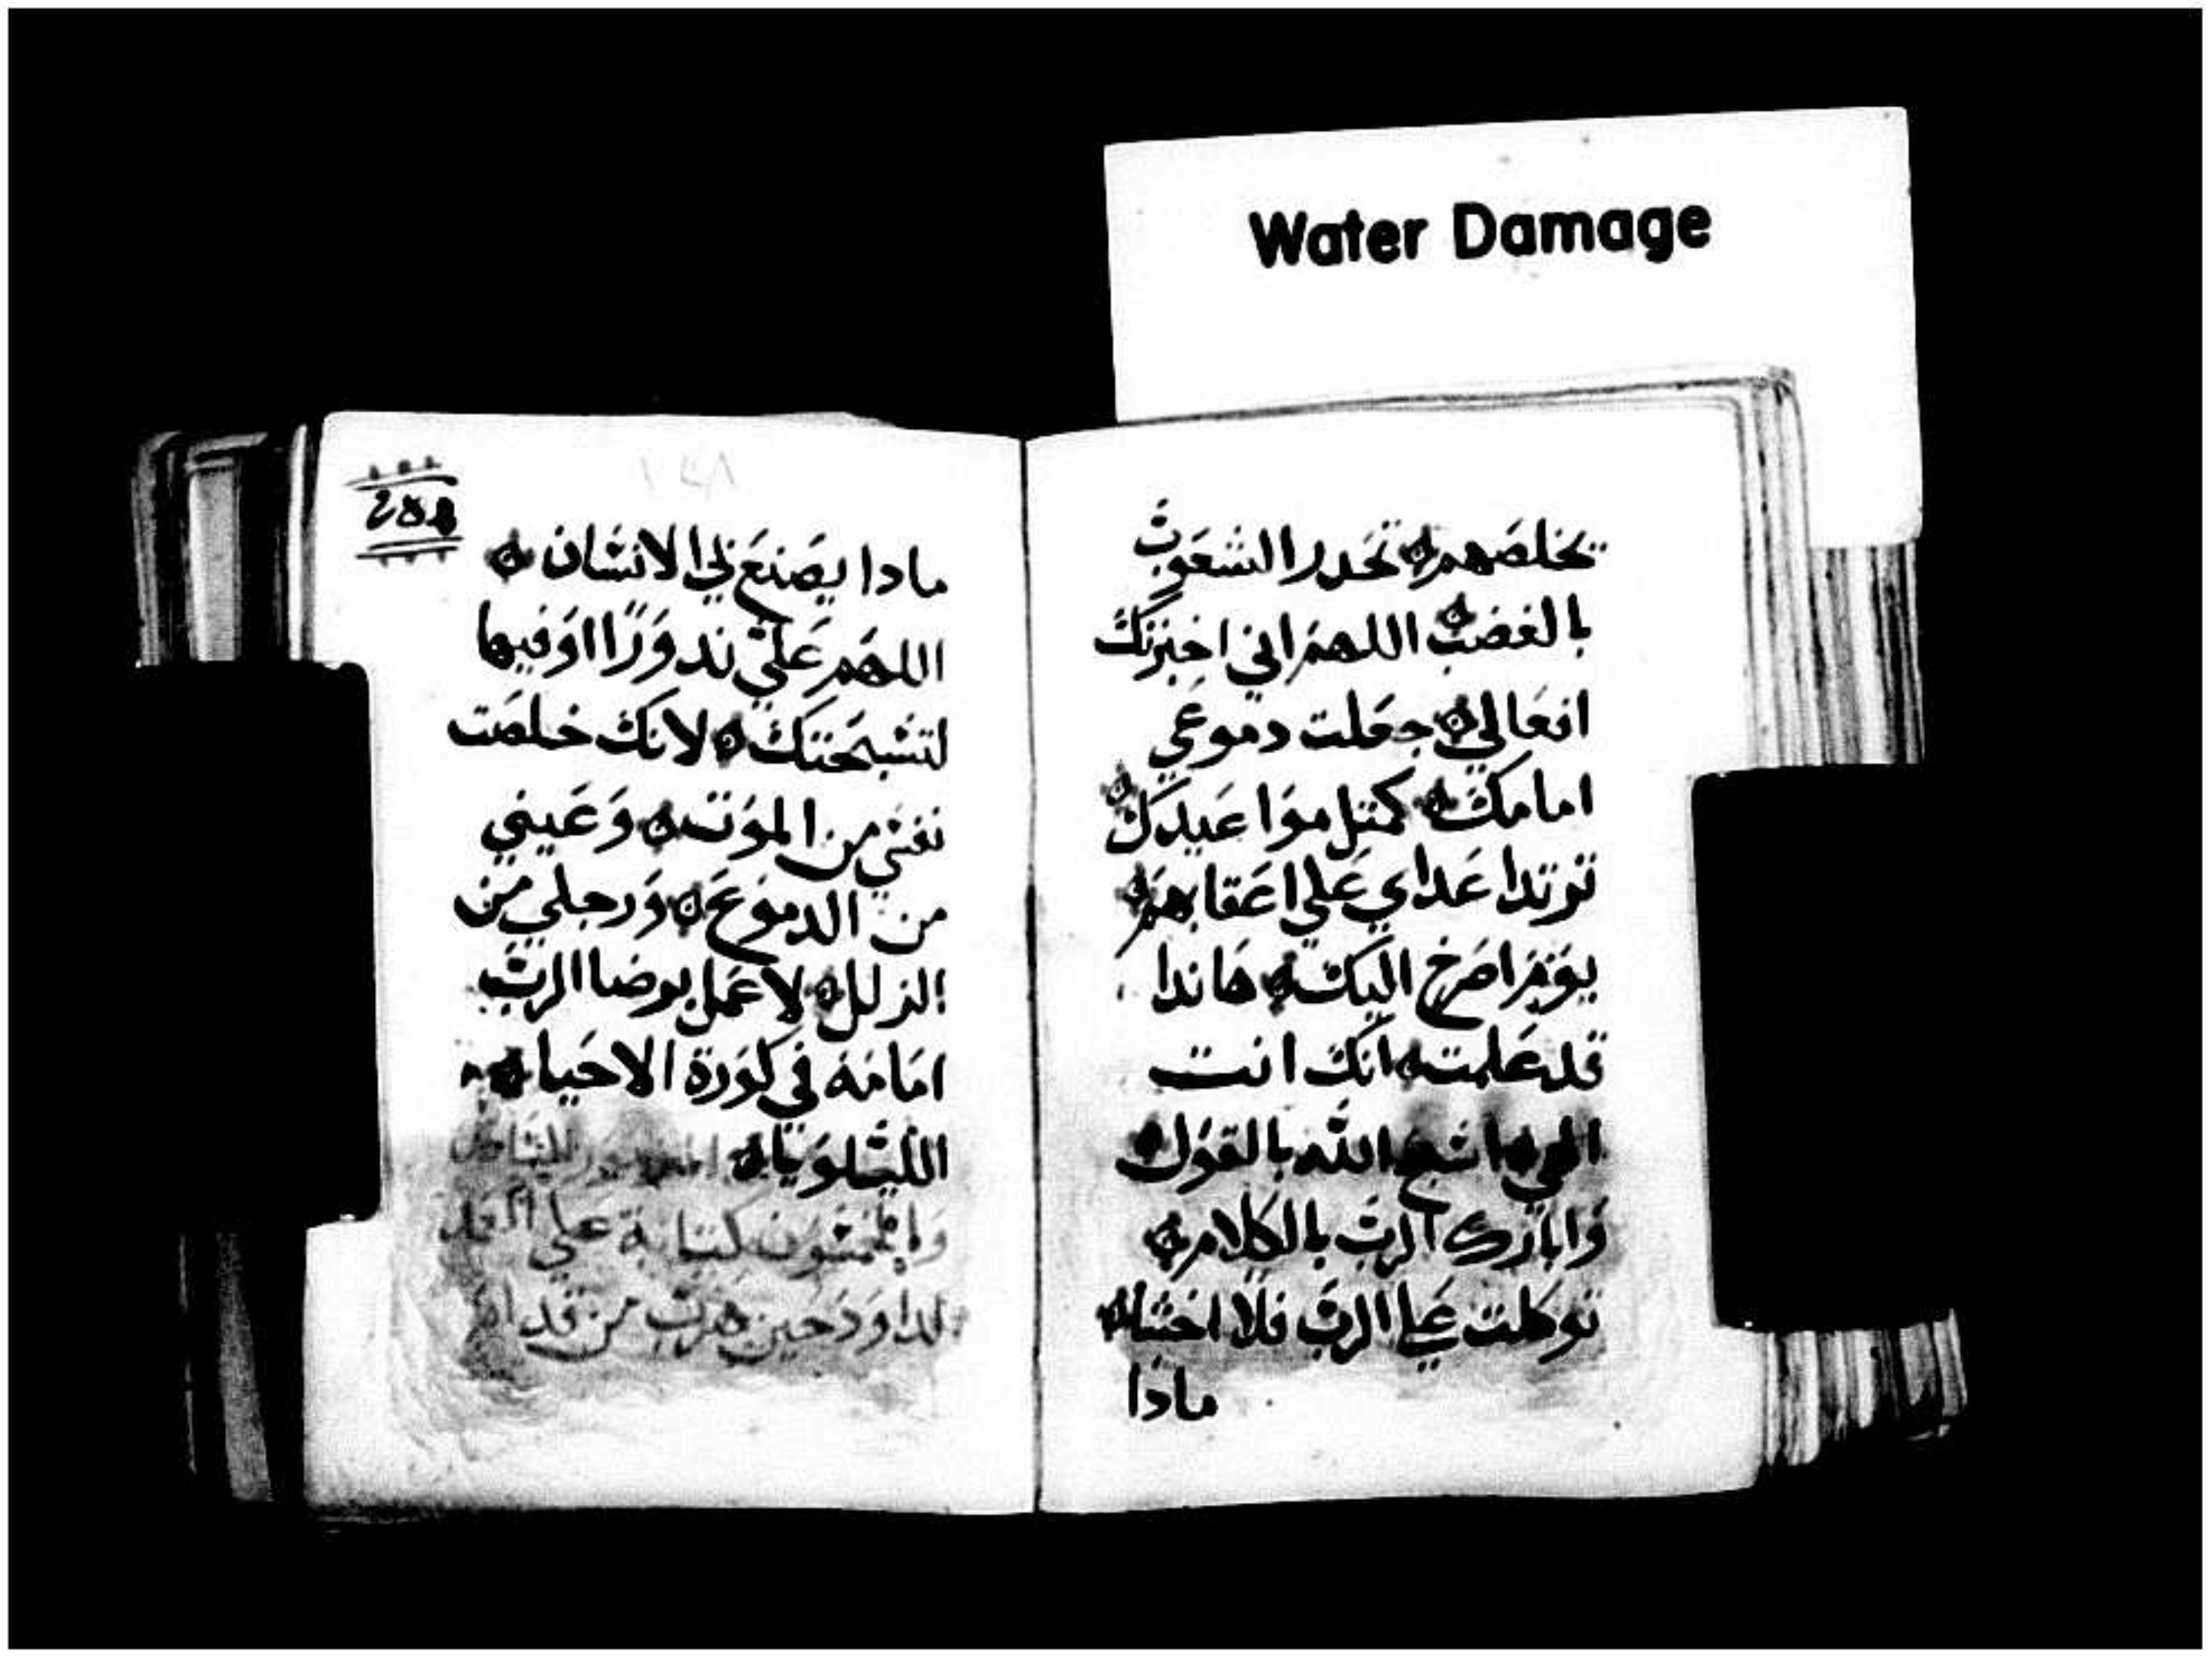 Water Damage
تخلصهم تحدر الشعوب
بالغضب اللهم اني اخبرتك
افعالي جعلت دموعي
امامك كمثل مواعيدك
ترتد اعداي علي اعقابهم
يوم اصرخ اليك هاندا
قد علمت انك انت
الهي اسبح الله بالقول
وابارك الرب بالكلام
توكلت علي الرب فلا اخشا
مادا
١٤٨
مادا يصنع لي الانسان
اللهم علي ندورا اوفيها
لتسبحتك لانك خلصت
نفسي من الموت وعيني
من الدموع ورجلي من
الزلل لاعمل برضا الرب
امامه في كورة الاحيا
الليلويا
كتابة علي
لداود حين هرب من قدام